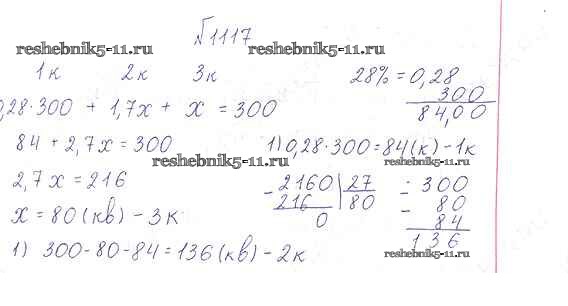 №1117
reshebnik5-11.ru reshebnik5-11.ru
1к 2к 3к 28% = 0,28
300
84,00
0,28·300 + 1,7x + x = 300
84 + 2,7x = 300 1) 0,28·300 = 84(к) - 1к
reshebnik5-11.ru
2,7x = 216
- 2160 27
216 80
0
- 300
- 80
84
136
x = 80(кв) - 3к
reshebnik5-11.ru reshebnik5-11.ru
1) 300-80-84 = 136(кв) - 2к